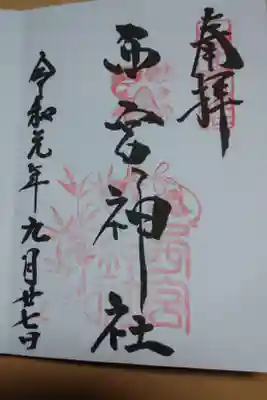 奉拝
西宮神社
令和元年九月廿七日